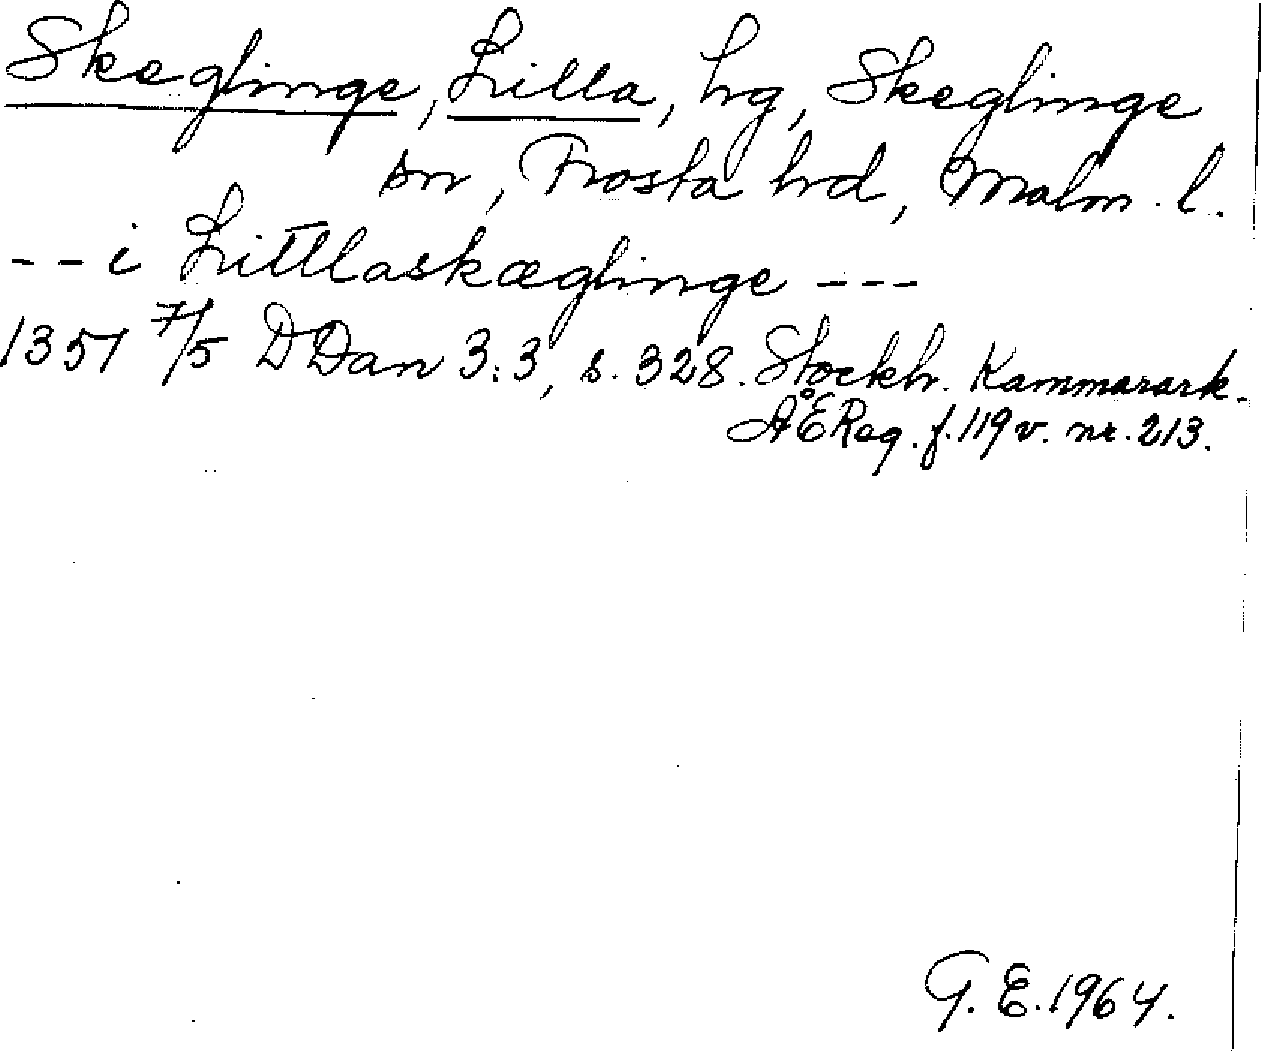 Skeglinge, Lilla, hg, Skeglinge
sn, Frosta hrd, Malm. l.
--i Littlaskæglinge ---
1351 7/5 DDan 3:3, s. 328. Stockh. Kammarark.
ÅEReg. f. 119 v. nr. 213.
G. E. 1964.